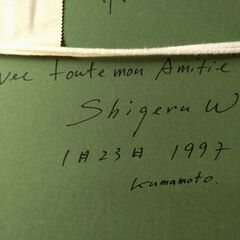 vec toute mon Amitie
Shigeru W
1月23日 1997
Kumamoto.